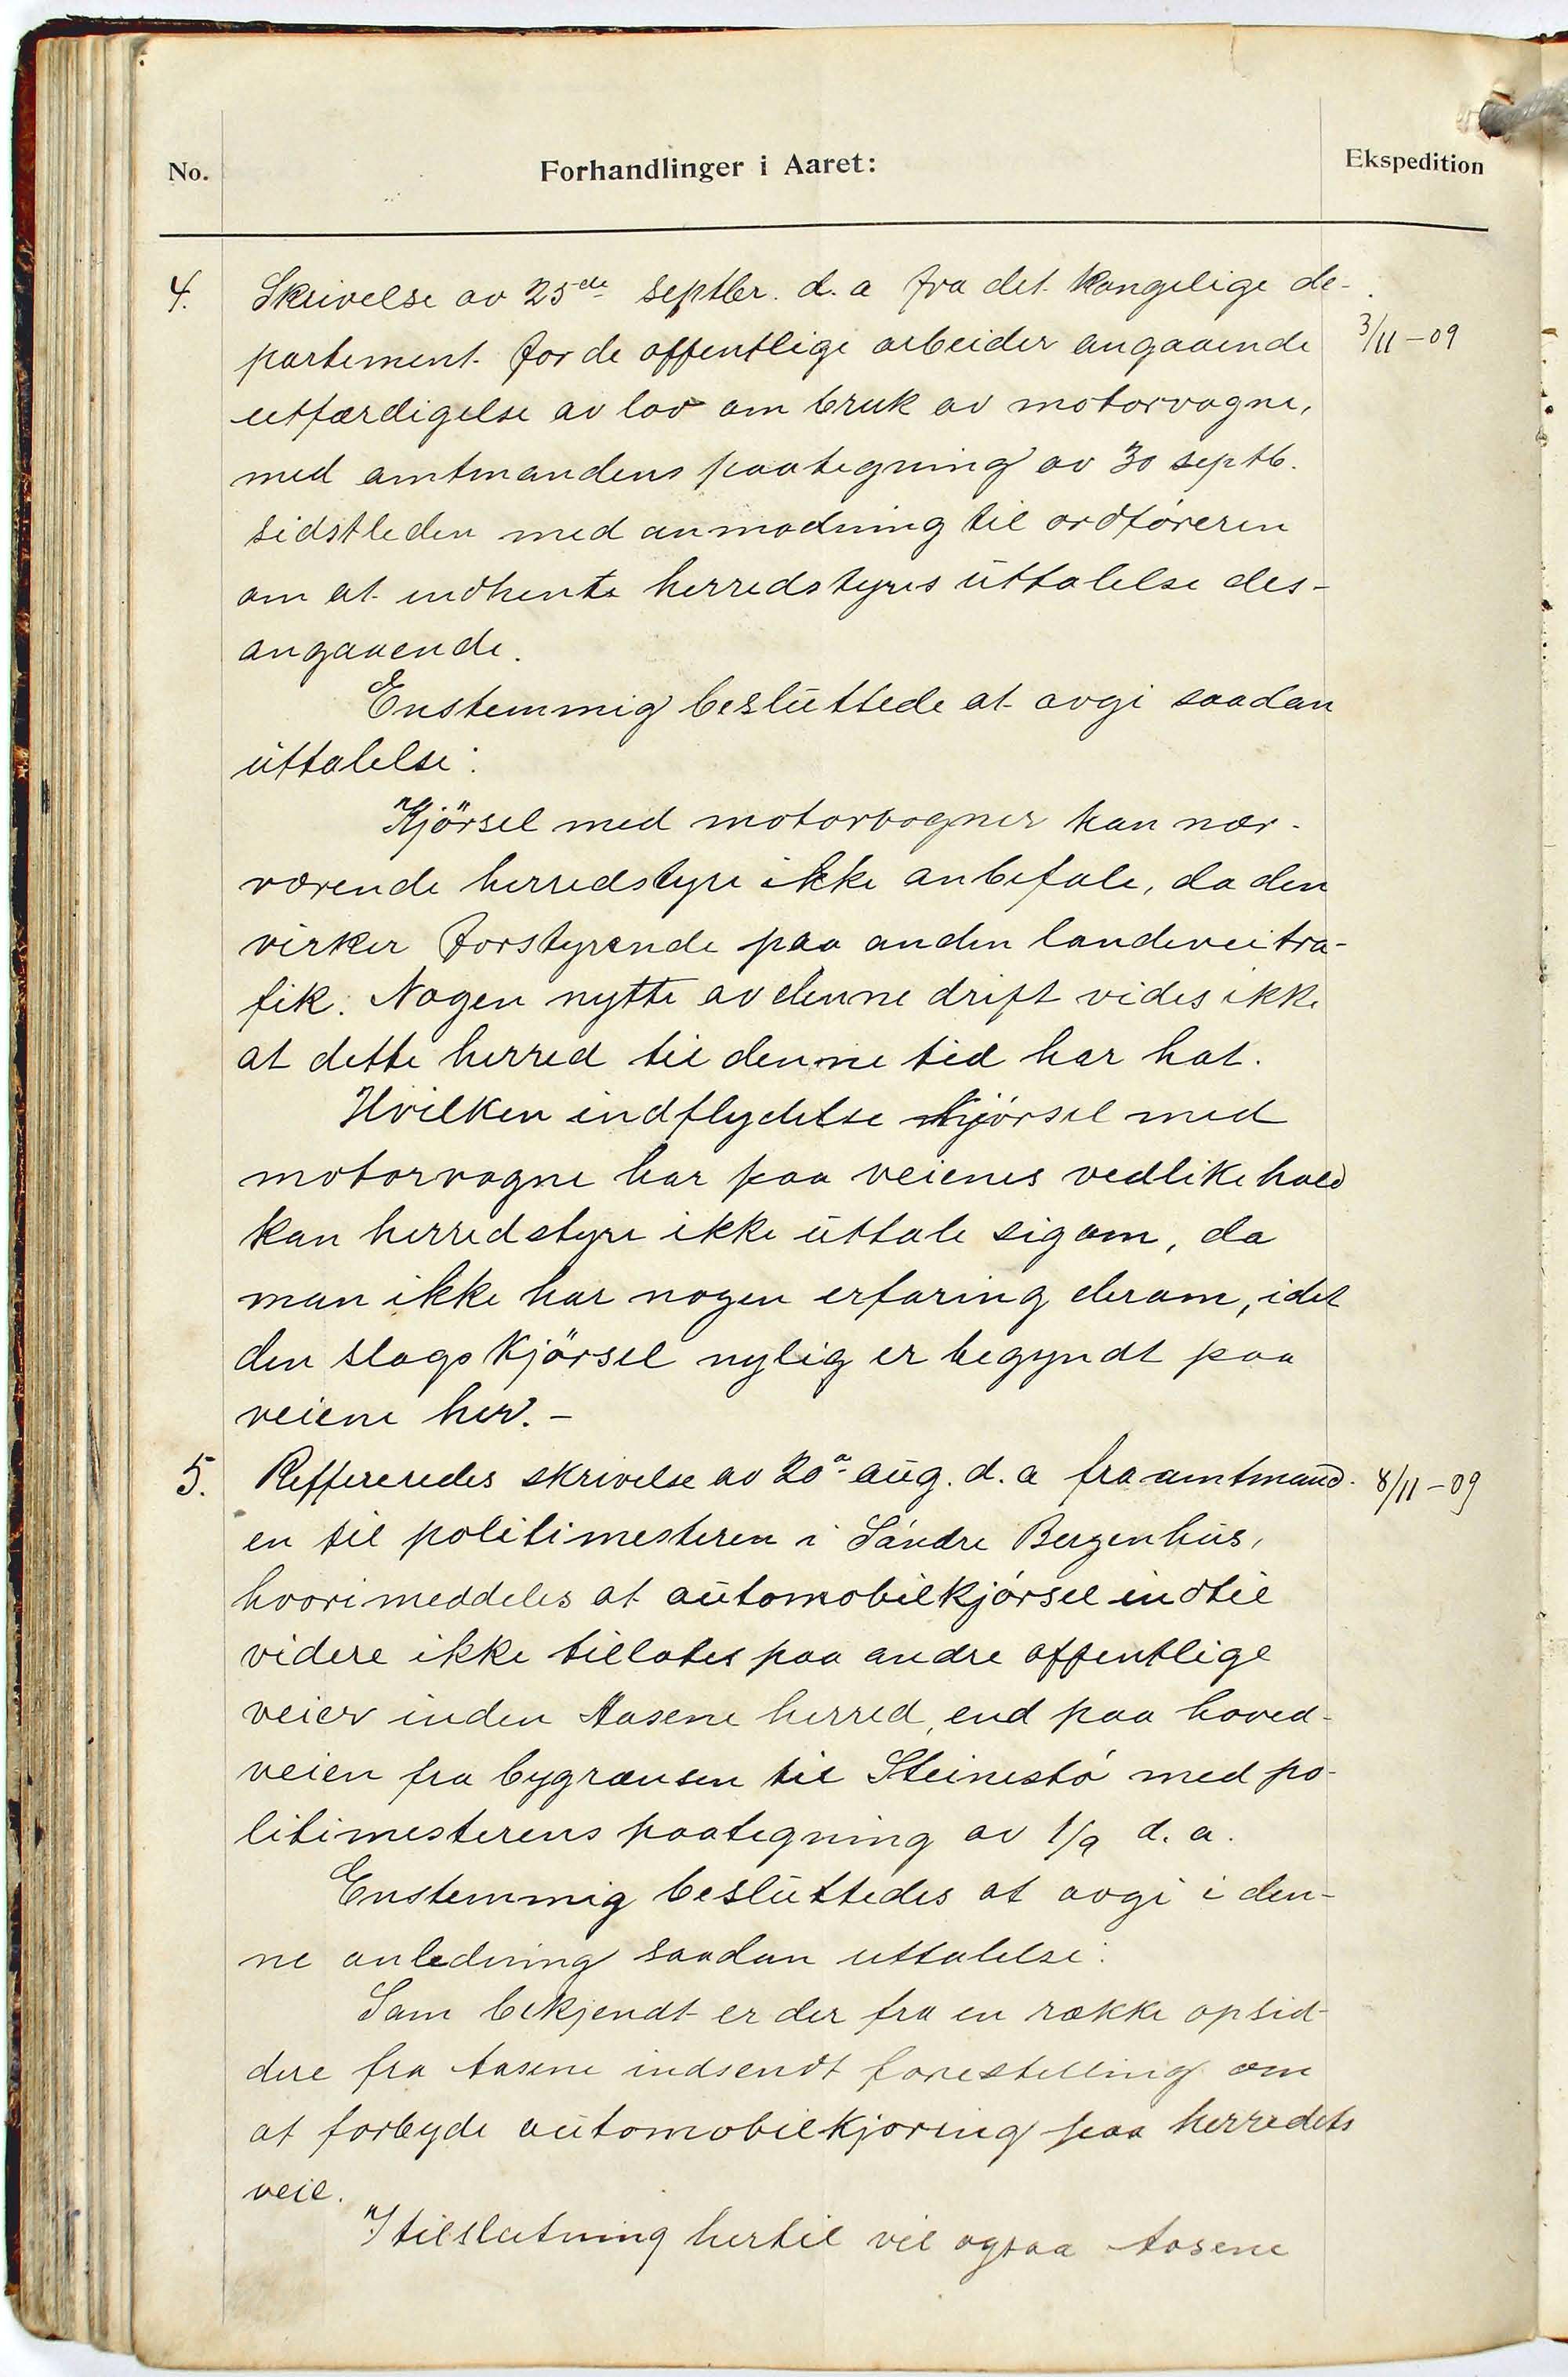 No. Forhandlinger i Aaret: Ekspedition
4. Skrivelse av 25de septbr. d. a fra det kongelige de-
partement for de offentlige arbeider angaaende 3/11-09
utfærdigelse av lov om bruk av motorvogne,
med amtmandens paategning av 30 septb.
sidstleden med anmodning til ordføreren
om at indhente herredstyres uttalelse des-
angaaende.
Enstemmig besluttede at avgi saadan
uttalelse:
Kjörsel med motorvogner kan nær-
værende herredstyre ikke anbefale, da den
virker forstyrende paa anden landeveitra-
fik. Nogen nytte av denne drift vides ikke
at dette herred til denne tid har hat.
Hvilken indflydelse kjørsel med
motorvogne har paa veienes vedlikehold
kan herredstyre ikke uttale sig om, da
man ikke har nogen erfaring derom, idet
den slags kjörsel nylig er begyndt paa
veiene her.-
5. Reffereredes skrivelse av 20a aug. d. a fra amtmand- 8/11-09
en til politimesteren i Søndre Bergenhus,
hvori meddeles at automobilkjørsel indtil
videre ikke tillates paa andre offentlige
veier inden Aasene herred, end paa hoved-
veien fra bygrænsen til Steinestø med po-
litimesterens paategning av 1/9 d. a.
Enstemmig besluttedes at avgi i den-
ne anledning saadan uttalelse:
Som bekjendt er der fra en række opsid-
dere fra Aasene indsendt forestilling om
at forbyde automobilkjøring paa herredets
veie.
I tilslutning hertil vil ogsaa Aasene